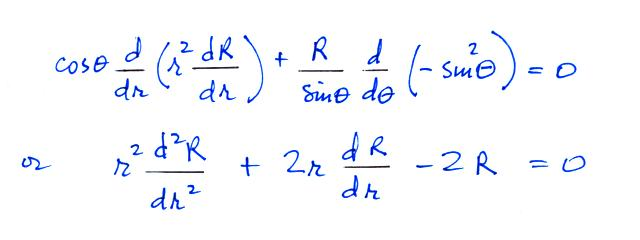 cosθ d/dr (r² dR/dr) + R/sinθ d/dθ (- sin²θ) = 0
or r² d²R/dr² + 2r dR/dr - 2R = 0